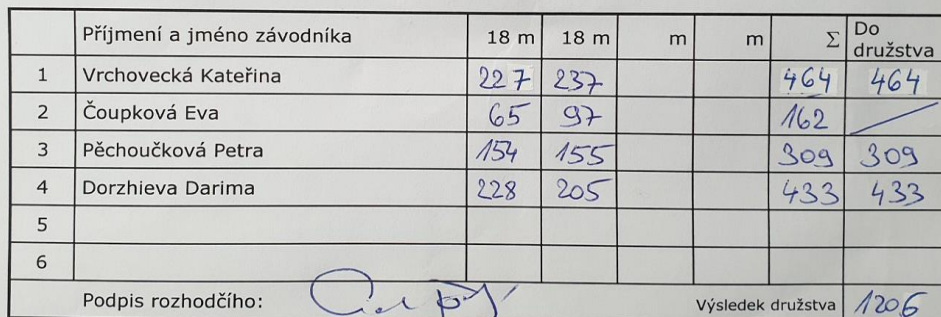 Příjmení a jméno závodníka 18 m 18 m m m Σ Do družstva
1 Vrchovecká Kateřina 227 237 464 464
2 Čoupková Eva 65 97 162
3 Pěchoučková Petra 154 155 309 309
4 Dorzhieva Darima 228 205 433 433
5
6
Podpis rozhodčího: Výsledek družstva 1206